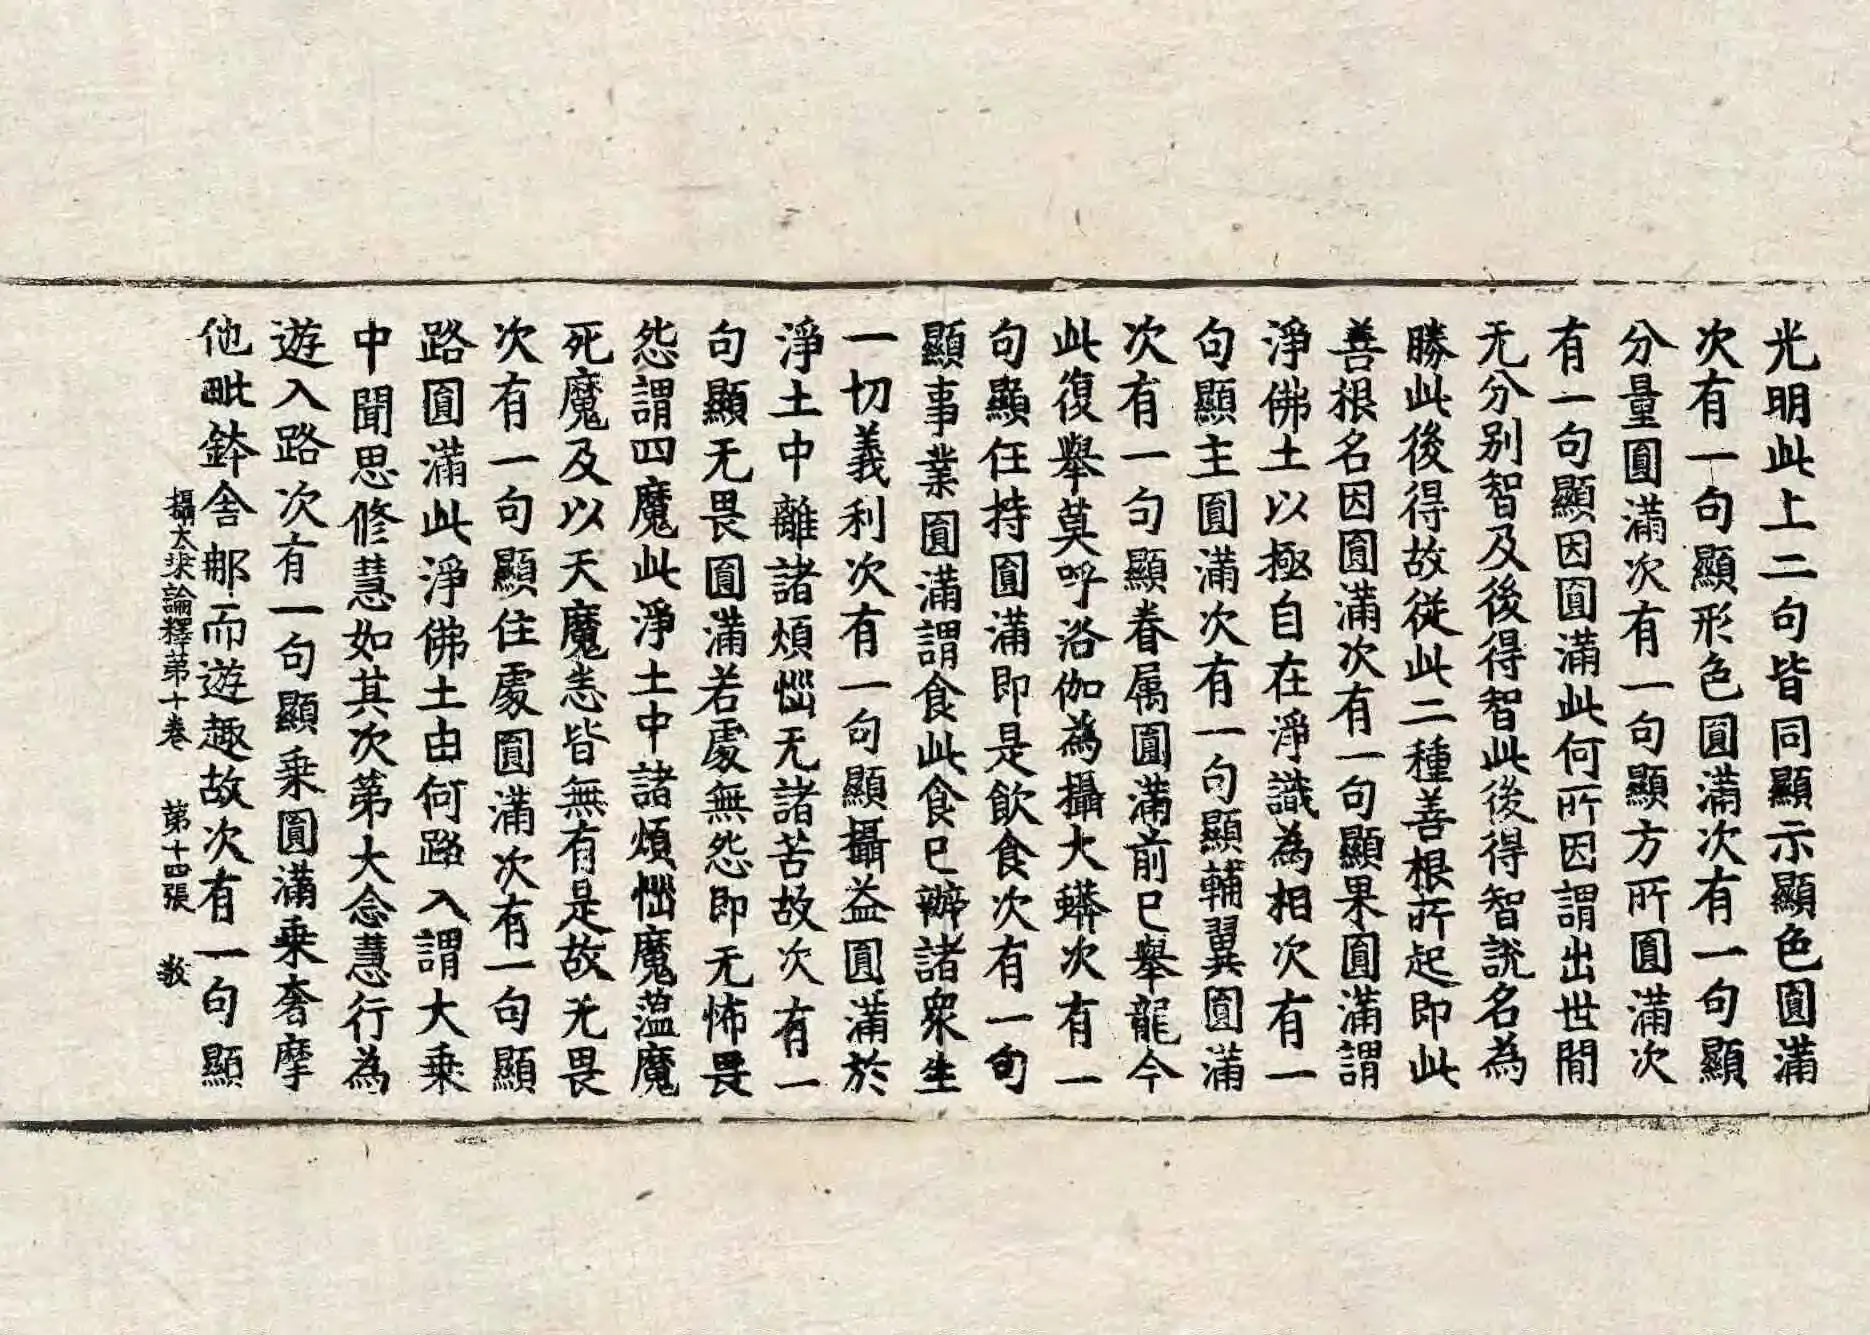 光明此上二句皆同顯示顯色圓滿
次有一句顯形色圓滿次有一句顯
分量圓滿次有一句顯方所圓滿次
有一句顯因圓滿此何所因謂出世間
无分別智及後得智此後得智說名為
勝此後得故從此二種善根所起即此
善根名因圓滿次有一句顯果圓滿謂
淨佛土以極自在淨識為相次有一
句顯主圓滿次有一句顯輔翼圓滿
次有一句顯眷属圓滿前已舉龍今
此復舉莫呼洛伽為攝大蟒次有一
句顯任持圓滿即是飲食次有一句
顯事業圓滿謂食此食已辦諸衆生
一切義利次有一句顯攝益圓滿於
淨土中離諸煩惱无諸苦故次有一
句顯无畏圓滿若處無怨即无怖畏
怨謂四魔此淨土中諸煩惱魔蕰魔
死魔及以天魔恙皆無有是故无畏
次有一句顯住處圓滿次有一句顯
路圓滿此淨佛土由何路入謂大乗
中聞思修慧如其次第大念慧行為
遊入路次有一句顯乗圓滿乗奢摩
他毗鉢舍那而遊趣故次有一句顯
攝大乗論釋苐十卷 苐十四張 敎